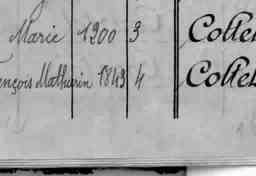 Marie 1900 3 Collet
ençois Mathurin 1843 4 Collet